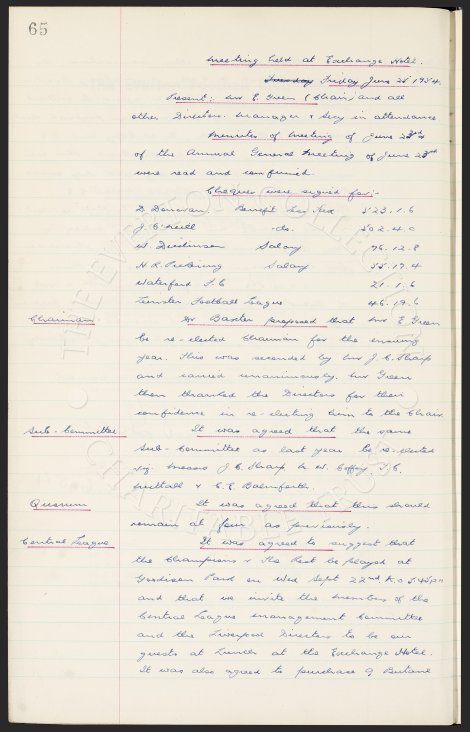 65
Meeting held at Exchange Hotel.
Tuesday Friday June 25 1954.
Present: Mr E. Green (Chair) and all
other Directors. Manager & Secy in attendance
Minutes of Meeting of June 23rd &
of the Annual General Meeting of June 23rd
were read and confirmed.
Cheques were signed for:-
D. Donovan. Benefit less tax 523.1.6
J. O'Neill -do. 502.4.0
W. Dickinson Salary 76.12.8
H. R. Pickering Salary 55.17.4
Waterford F.C 21.1.6
Leinster Football League 46.17.6
Chairman
Dr Baxter proposed that Mr E Green
be re-elected Chairman for the ensuing
year. This was seconded by Mr J. C. Sharp
and carried unanimously. Mr Green
then thanked the Directors for their
confidence in re-electing him to the Chair.
Sub-Committee
It was agreed that the same
Sub-Committee as last year be re-elected
viz. Messrs J. C. Sharp N. W. Coffey T. C.
Nuttall & C. E. Balmforth.
Quorum
It was agreed that this should
remain at four as previously.
Central League
It was agreed to suggest that
the Champions v The Rest be played at
Goodison Park on Wed Sept 22nd K.O 5.45pm
and that we invite the members of the
Central League Management Committee
and the Liverpool Directors to be our
guests at Lunch at the Exchange Hotel.
It was also agreed to purchase 9 Butane
THE EVERTON COLLECTION
CHARITABLE TRUST